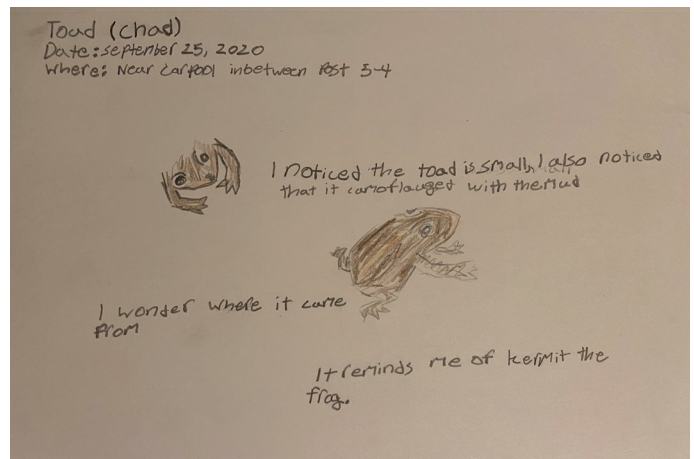 Toad (chad)
Date: September 25, 2020
Where: Near carpool inbetween Post 5-4
I noticed the toad is small, I also noticed
that it camoflauged with the mud
I wonder where it came
from
It reminds me of kermit the
frog.